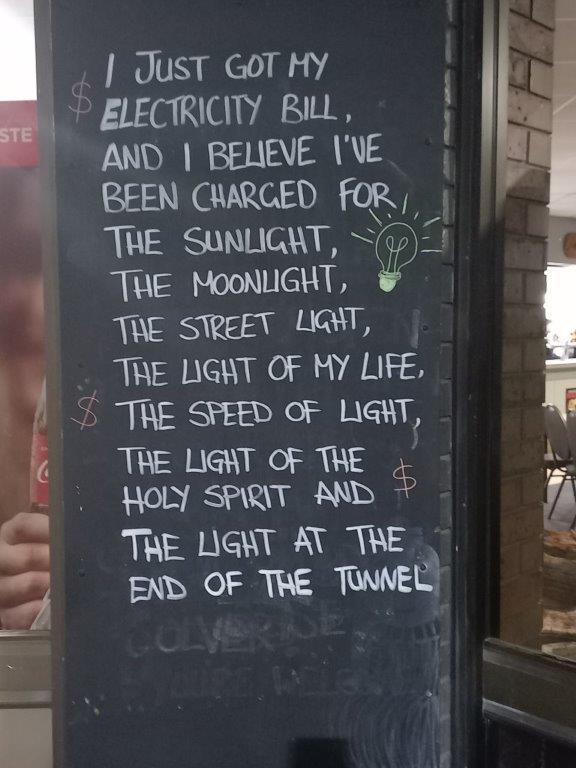 STE
I JUST GOT MY
$
ELECTRICITY BILL,
AND I BELIEVE I'VE
BEEN CHARGED FOR
THE SUNLIGHT,
THE MOONLIGHT,
THE STREET LIGHT,
THE LIGHT OF MY LIFE,
$ THE SPEED OF LIGHT,
THE LIGHT OF THE
$
HOLY SPIRIT AND
THE LIGHT AT THE
END OF THE TUNNEL